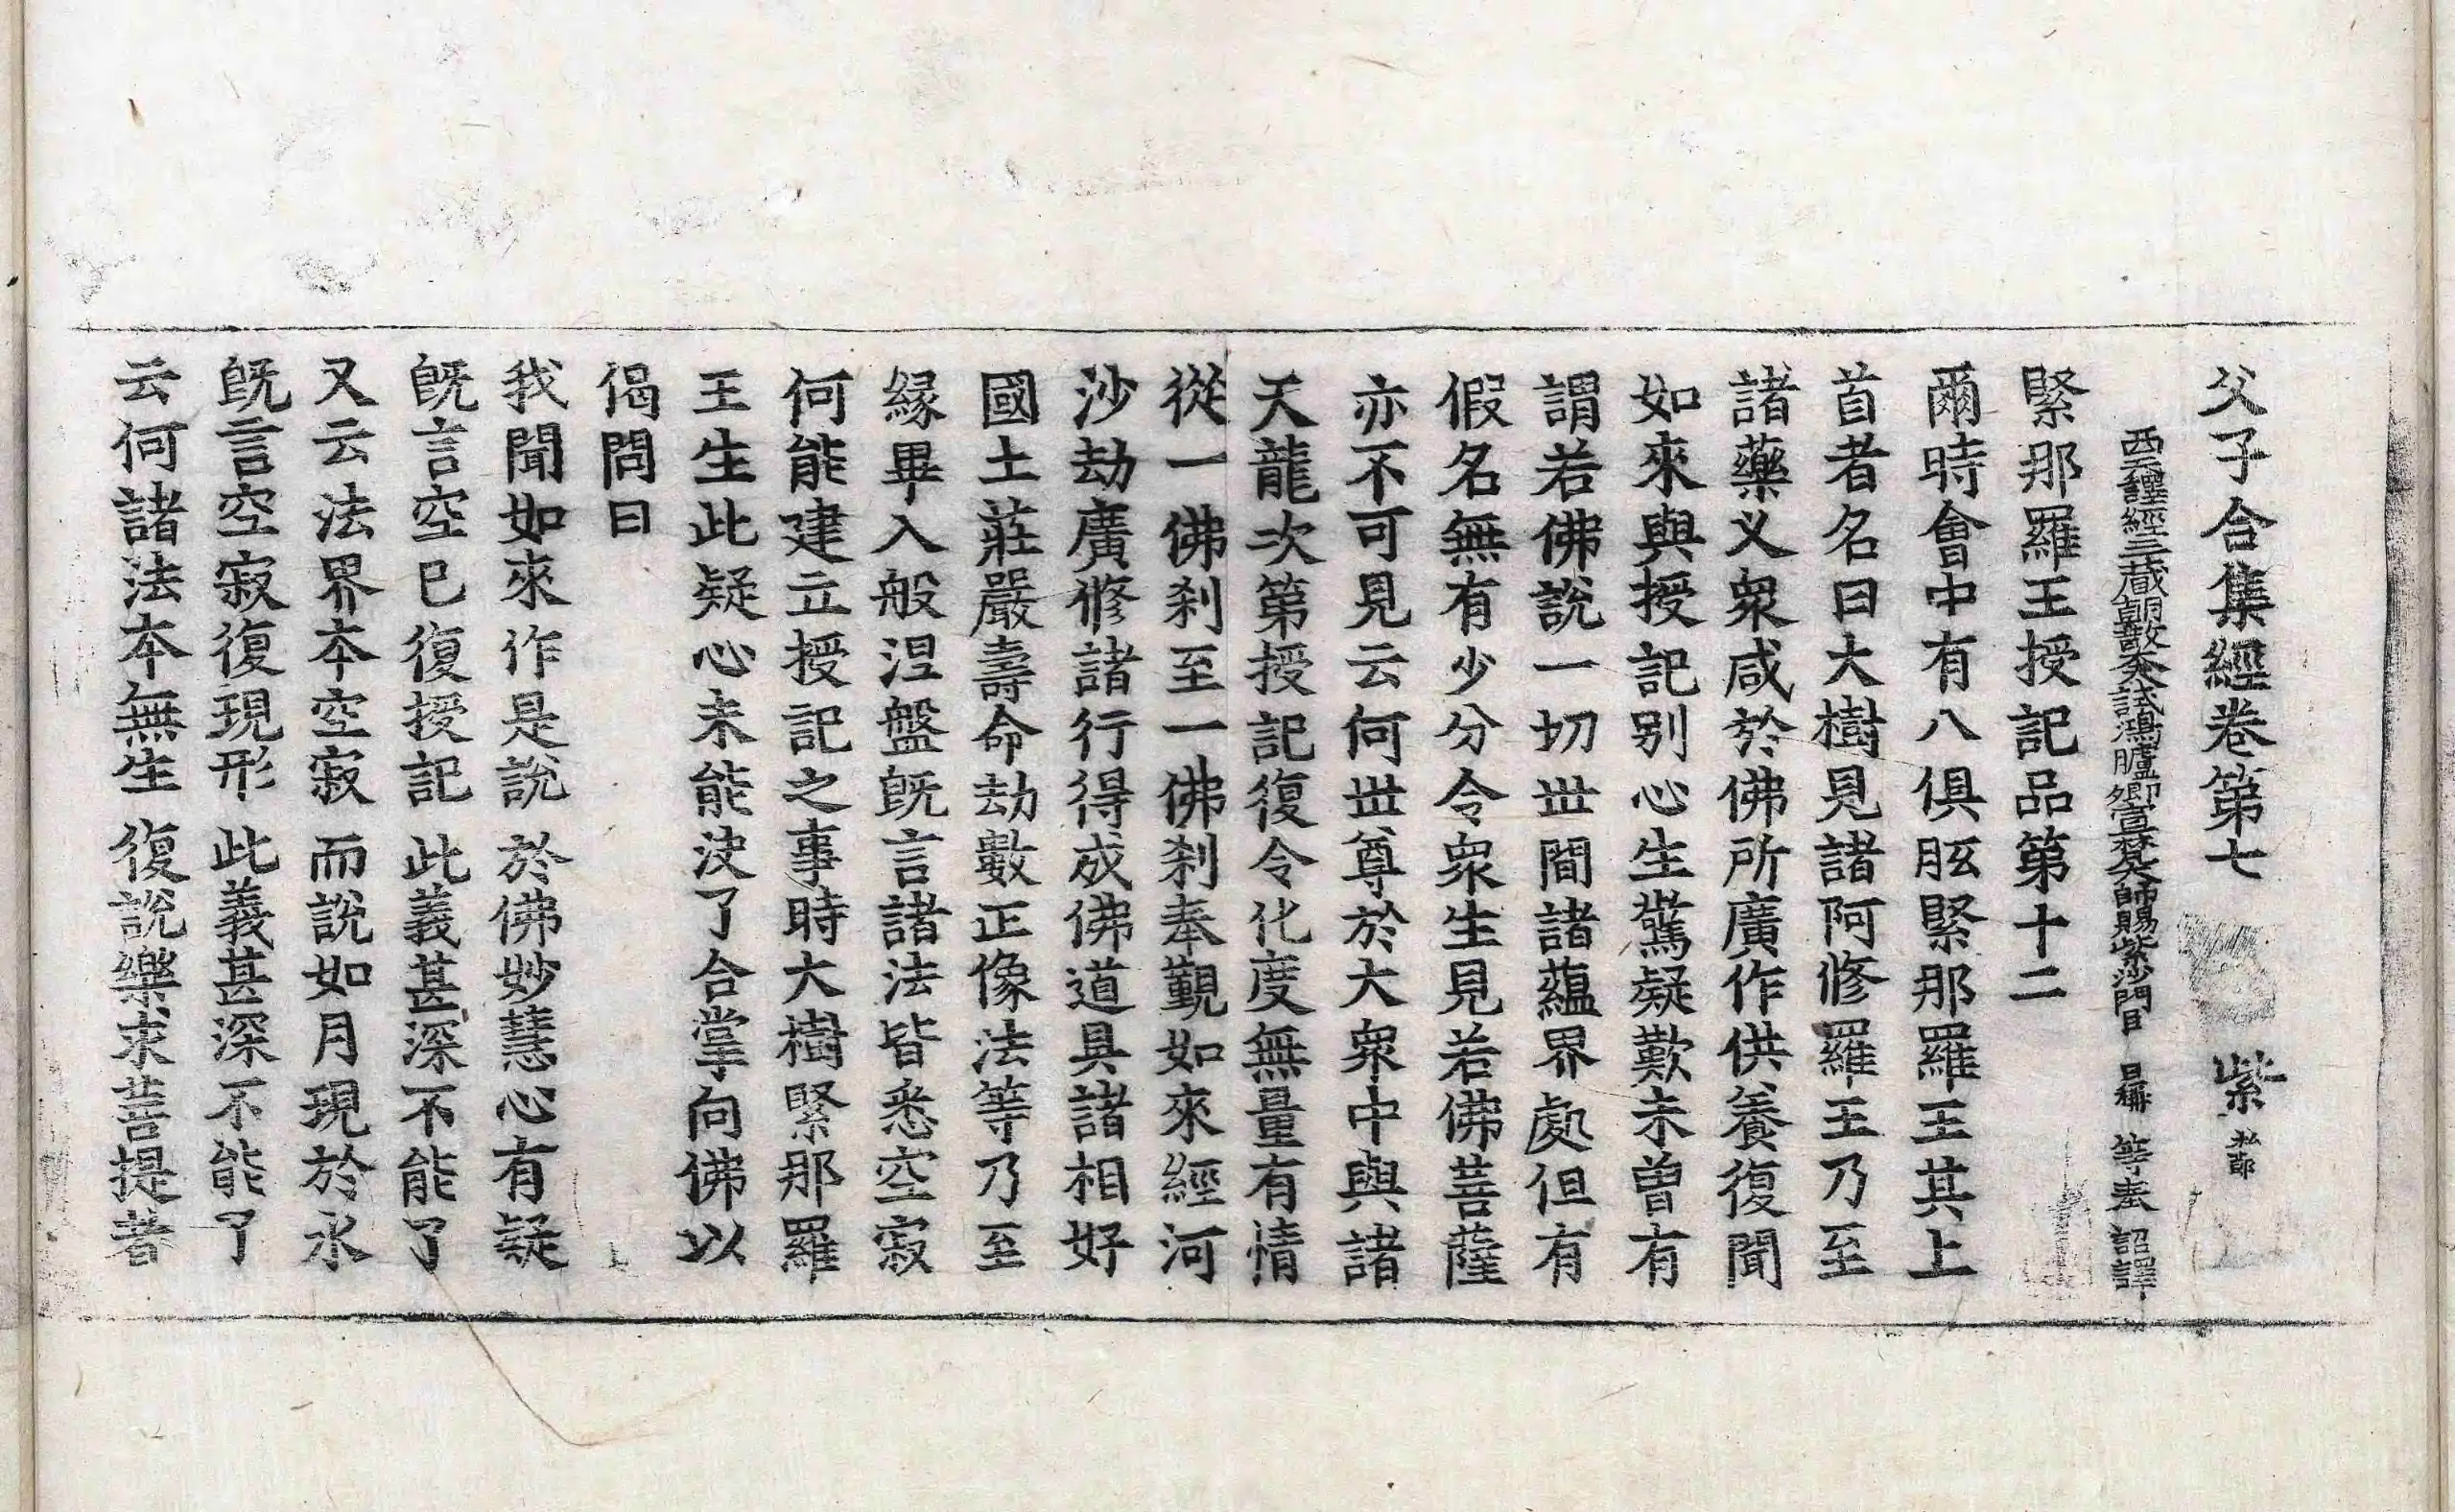 父子合集經卷第七 紫
西天譯經三藏朝散大夫試鴻臚卿宣梵大師賜紫沙門臣 日稱 等奉 詔譯
緊那羅王授記品第十二
爾時會中有八俱胝緊那羅王其上
首者名曰大樹見諸阿修羅王乃至
諸藥叉衆咸於佛所廣作供養復聞
如來與授記别心生驚疑歎未曾有
謂若佛說一切世間諸蘊界處但有
假名無有少分令衆生見若佛菩薩
亦不可見云何世尊於大衆中與諸
天龍次第授記復令化度無量有情
從一佛刹至一佛刹奉覲如來經河
沙劫廣修諸行得成佛道具諸相好
國土莊嚴壽命劫數正像法等乃至
緣畢入般涅盤旣言諸法皆悉空寂
何能建立授記之事時大樹緊那羅
王生此疑心未能決了合掌向佛以
偈問曰
我聞如來作是說 於佛妙慧心有疑
旣言空已復授記 此義甚深不能了
又云法界本空寂 而說如月現於水
旣言空寂復現形 此義甚深不能了
云何諸法本無生 復說樂求菩提者